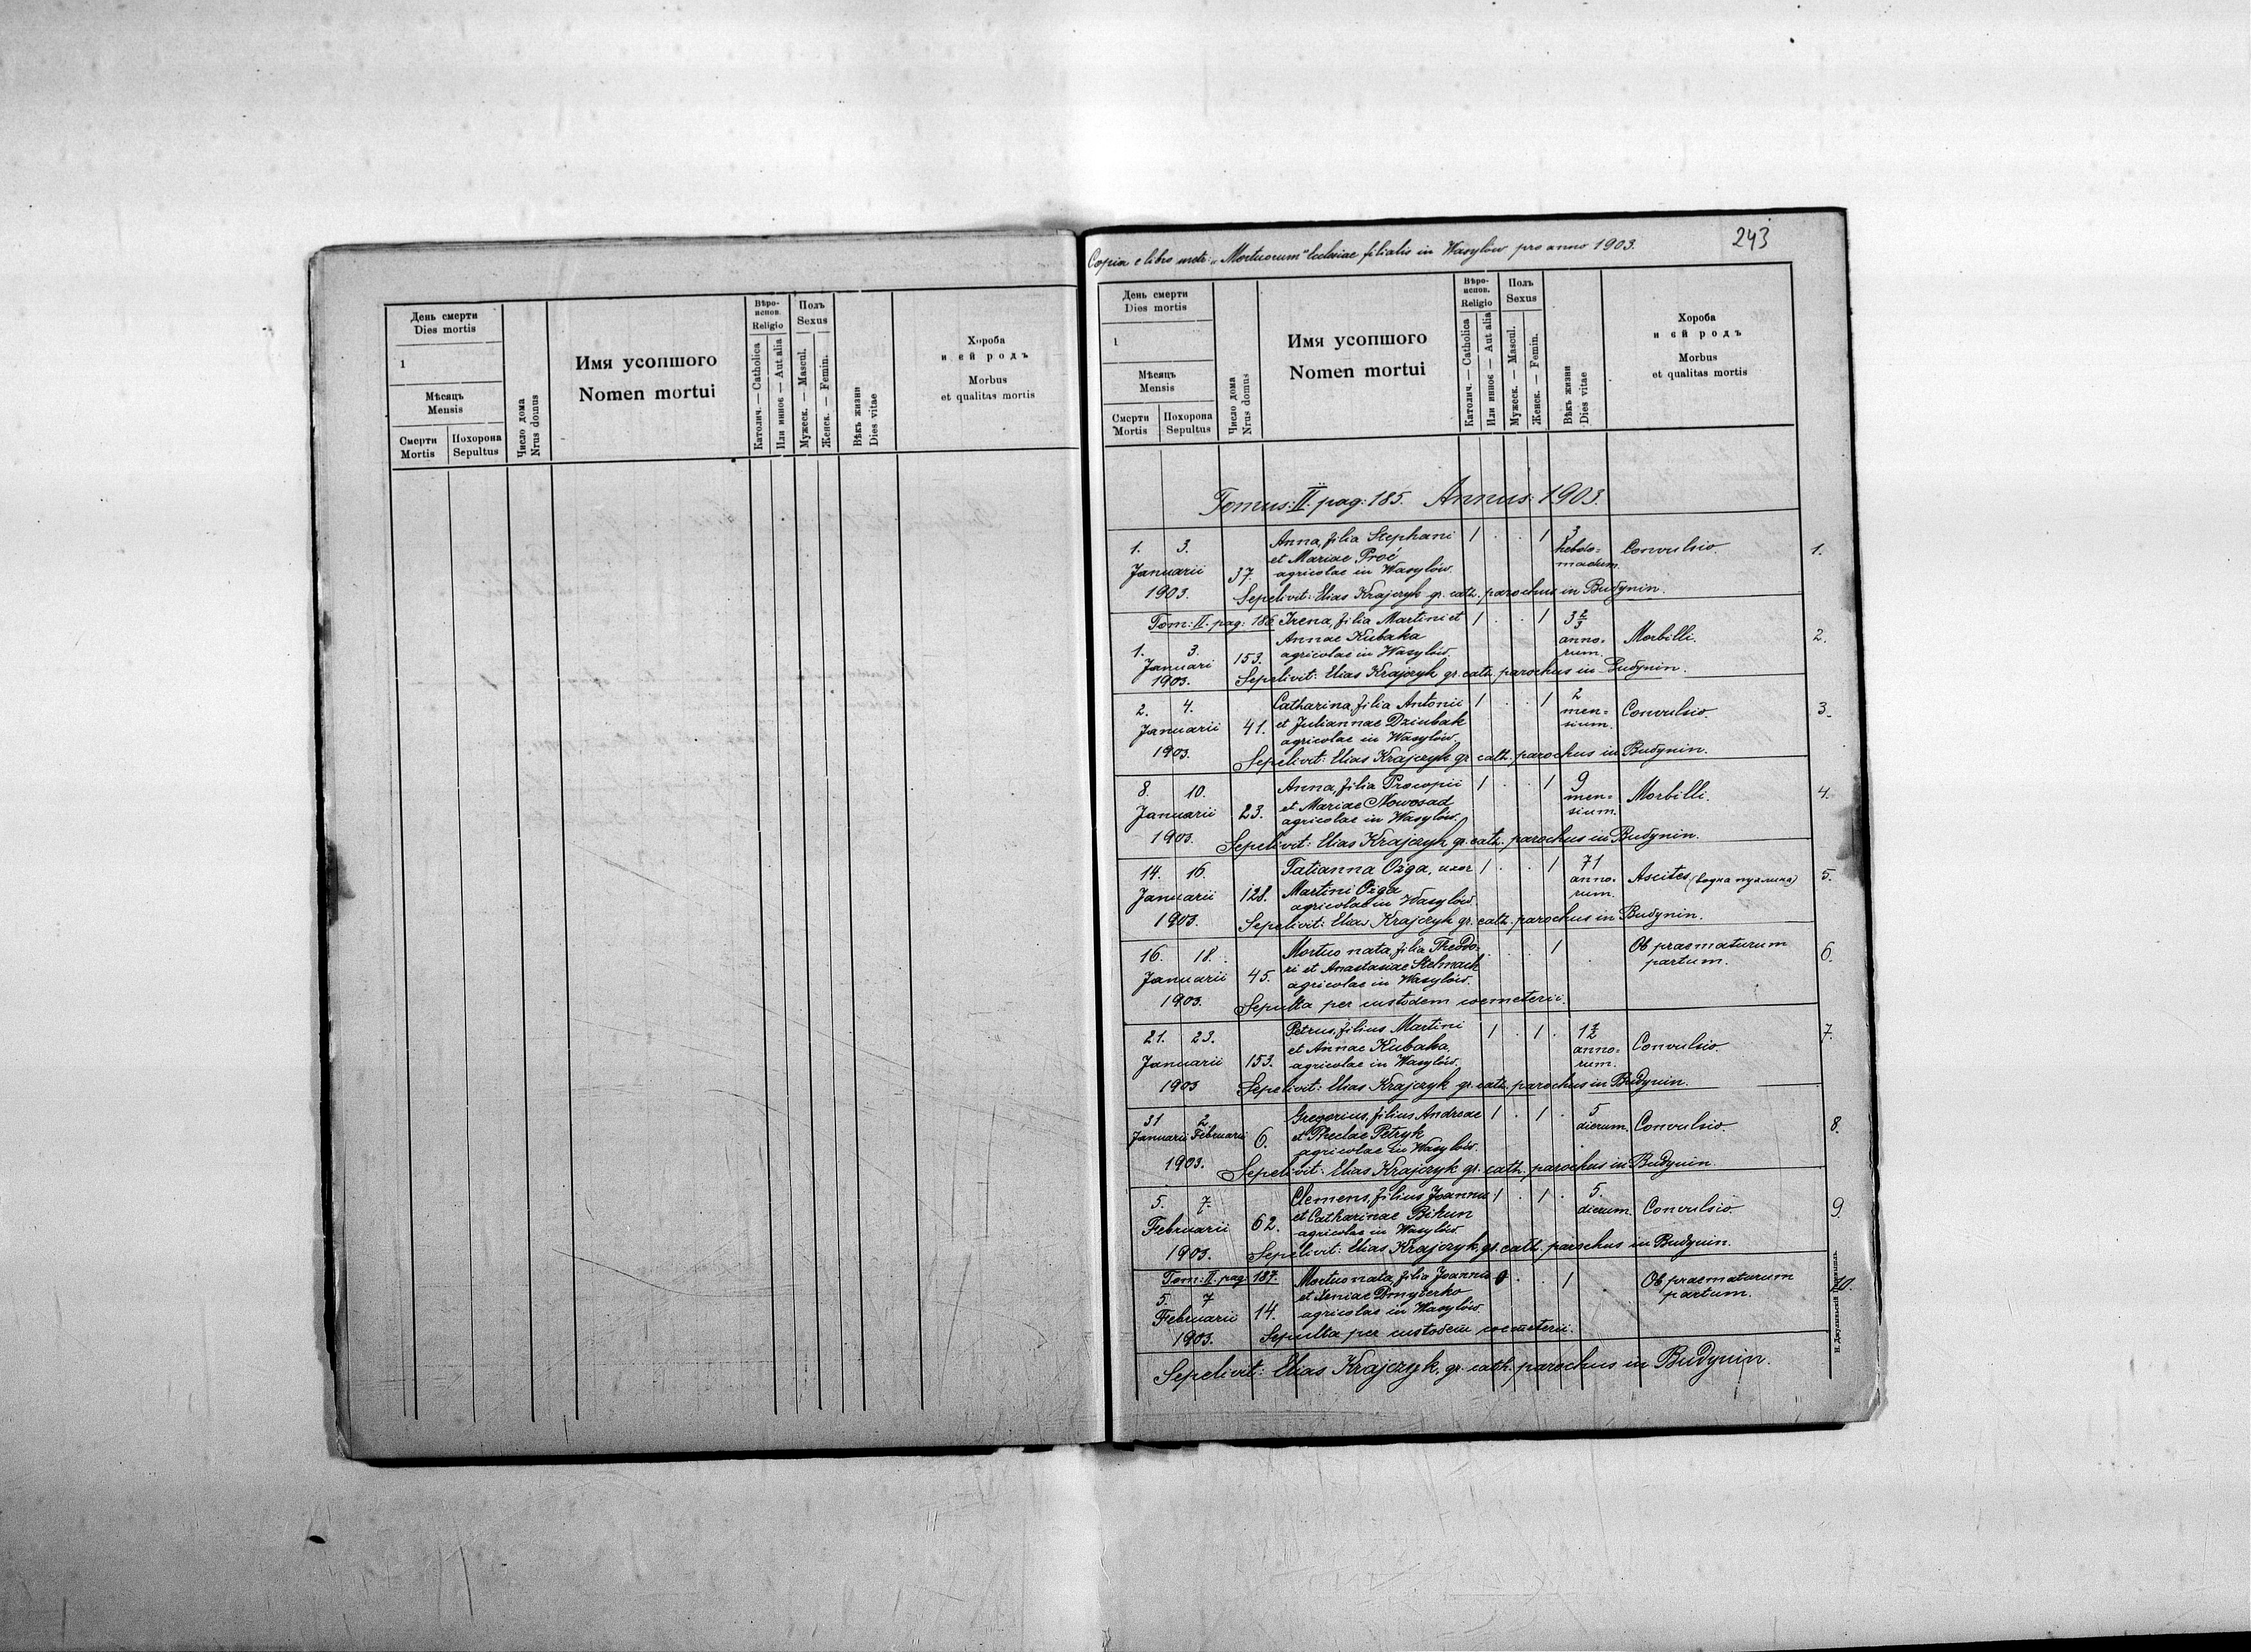 День смерти
Dies mortis
1
Мѣсяць
Mensis
Смерти
Mortis
Похорона
Sepultus
Число дома
Nrus domus
Имя усопшого
Nomen mortui
Вѣро-
испов.
Religio
Католич. — Catholica
Или инное — Aut alia
Полъ
Sexus
Мужеск. — Mascul.
Женск. — Femin.
Вѣкъ жизни
Dies vitae
Хороба
и ей родъ
Morbus
et qualitas mortis
243
Copia e libro metr: „Mortuorum" Ecclesiae filialis in Wasylów pro anno 1903.
День смерти
Dies mortis
1
Мѣсяць
Mensis
Смерти
Mortis
Похорона
Sepultus
Число дома
Nrus domus
Имя усопшого
Nomen mortui
Вѣро-
испов.
Religio
Католич. — Catholica
Или инное — Aut alia
Полъ
Sexus
Мужеск. — Mascul.
Женск. — Femin.
Вѣкъ жизни
Dies vitae
Хороба
и ей родъ
Morbus
et qualitas mortis
Tomus: II. pag: 185. Annus: 1903.
1. 3. Anna, filia Stephani 1 . . 1 3
et Mariae Proć hebdo= Convulsio. 1.
Januarii 37. agricolae in Wasylów. madum.
1903. Sepelivit: Elias Krajczyk gr. cath. parochus in Budynin.
Tom: II. pag: 186 Irena, filia Martini et 1 . . 1 3 2/3
Annae Kubaka anno= Morbilli. 2.
1. 3. 153. agricolae in Wasylów. rum.
Januari
1903. Sepelivit: Elias Krajczyk gr. cath. parochus in Budynin.
2. 4. Catharina, filia Antonii 1 . . 1 2
Januarii 41. et Juliannae Dziubak men= Convulsio. 3.
agricolae in Wasylów. sium.
1903. Sepelivit: Elias Krajczyk gr. cath. parochus in Budynin.
8. 10. Anna, filia Procopii 1 . . 1 9
Januarii 23. et Mariae Nowosad men= Morbilli. 4.
agricolae in Wasylów. sium.
1903. Sepelivit: Elias Krajczyk gr. cath. parochus in Budynin.
14. 16. Tatianna Ożga, uxor 1 . . 1 71
Januarii 128. Martini Ożga anno= Ascites (водна пухлина) 5.
agricolae in Wasylów. rum.
1903. Sepelivit: Elias Krajczyk gr. cath. parochus in Budynin.
16. 18. Mortuo nata, filia Theodo= . . . 1 . Ob praematurum 6.
Januarii 45. ri et Anastasiae Stelmach partum.
agricolae in Wasylów.
1903. Sepulta per custodem coemeterii.
21. 23. Petrus, filius Martini 1 . 1 . 1 1/2
Januarii 153. et Annae Kubaka, anno= Convulsio. 7.
agricolae in Wasylów. rum.
1903 Sepelivit: Elias Krajczyk gr. cath. parochus in Budynin.
31 2. Gregorius, filius Andreae 1 . 1 . 5
Januarii Februarii 6. et Theclae Petryk dierum. Convulsio. 8.
agricolae in Wasylów.
1903. Sepelivit: Elias Krajczyk gr. cath. parochus in Budynin.
5. 7. Clemens, filius Joannis 1 . 1 . 5.
Februarii 62. et Catharinae Bikun dierum. Convulsio 9.
agricolae in Wasylów
1903. Sepelivit: Elias Krajczyk, gr. cath. parochus in Budynin.
Tom: II. pag: 187. Mortuo nata, filia Joannis . . 1 Ob praematurum 10.
5. 7 et Xeniae Dmyterko partum.
Februarii 14. agricolae in Wasylów.
1903. Sepulta per custodem coemeterii.
Sepelivit: Elias Krajczyk, gr. cath. parochus in Budynin.